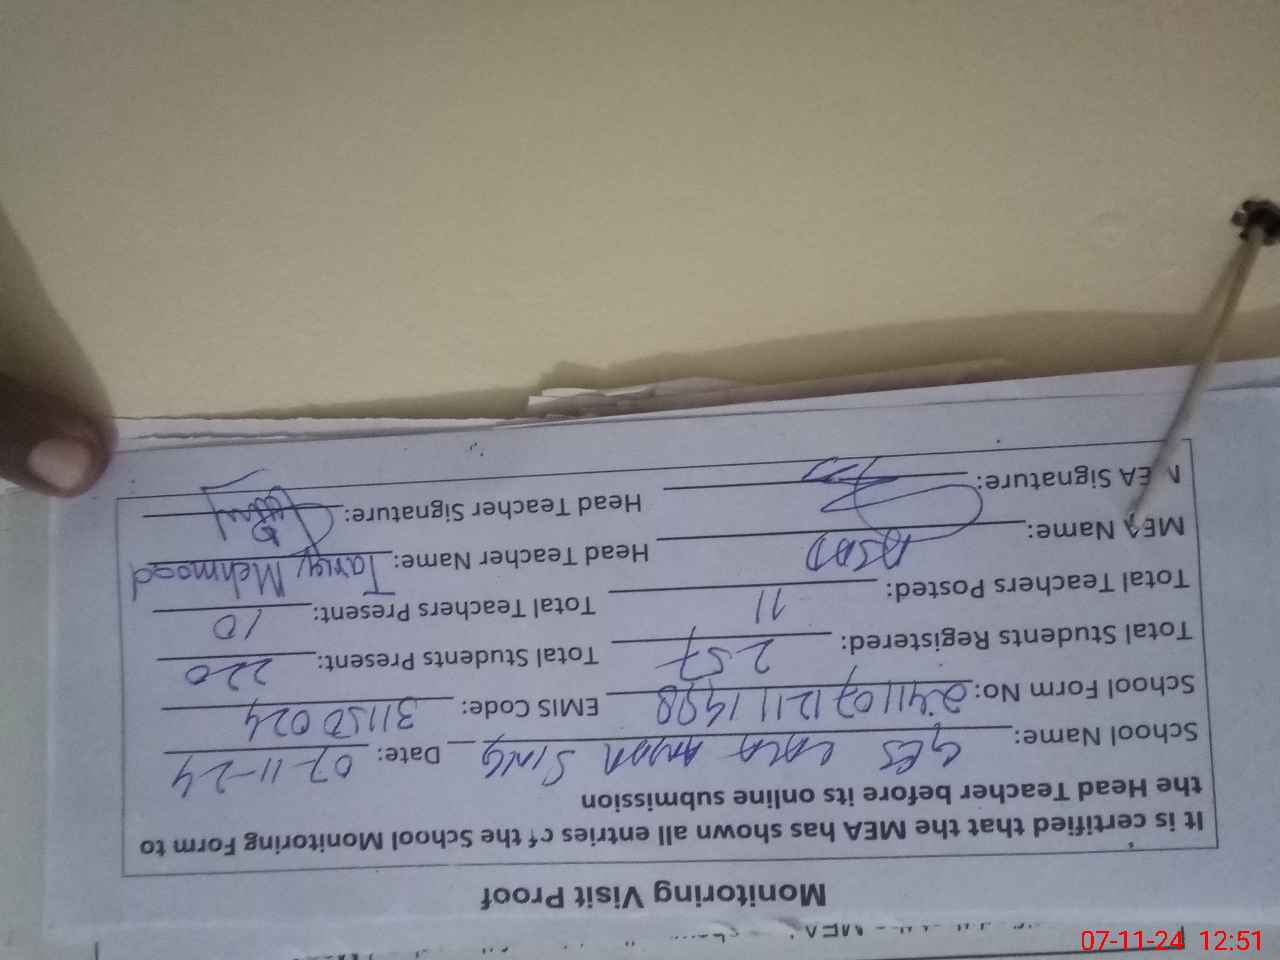 Monitoring Visit Proof
It is certified that the MEA has shown all entries of the School Monitoring Form to
the Head Teacher before its online submission
School Name: GES LALA AMAR SING Date: 07-11-24
School Form No: 2411071211498 EMIS Code: 31150024
Total Students Registered: 257 Total Students Present: 220
Total Teachers Posted: 11 Total Teachers Present: 10
MEA Name: ASAD Head Teacher Name: Tariq Mehmood
MEA Signature: Head Teacher Signature:
07-11-24 12:51